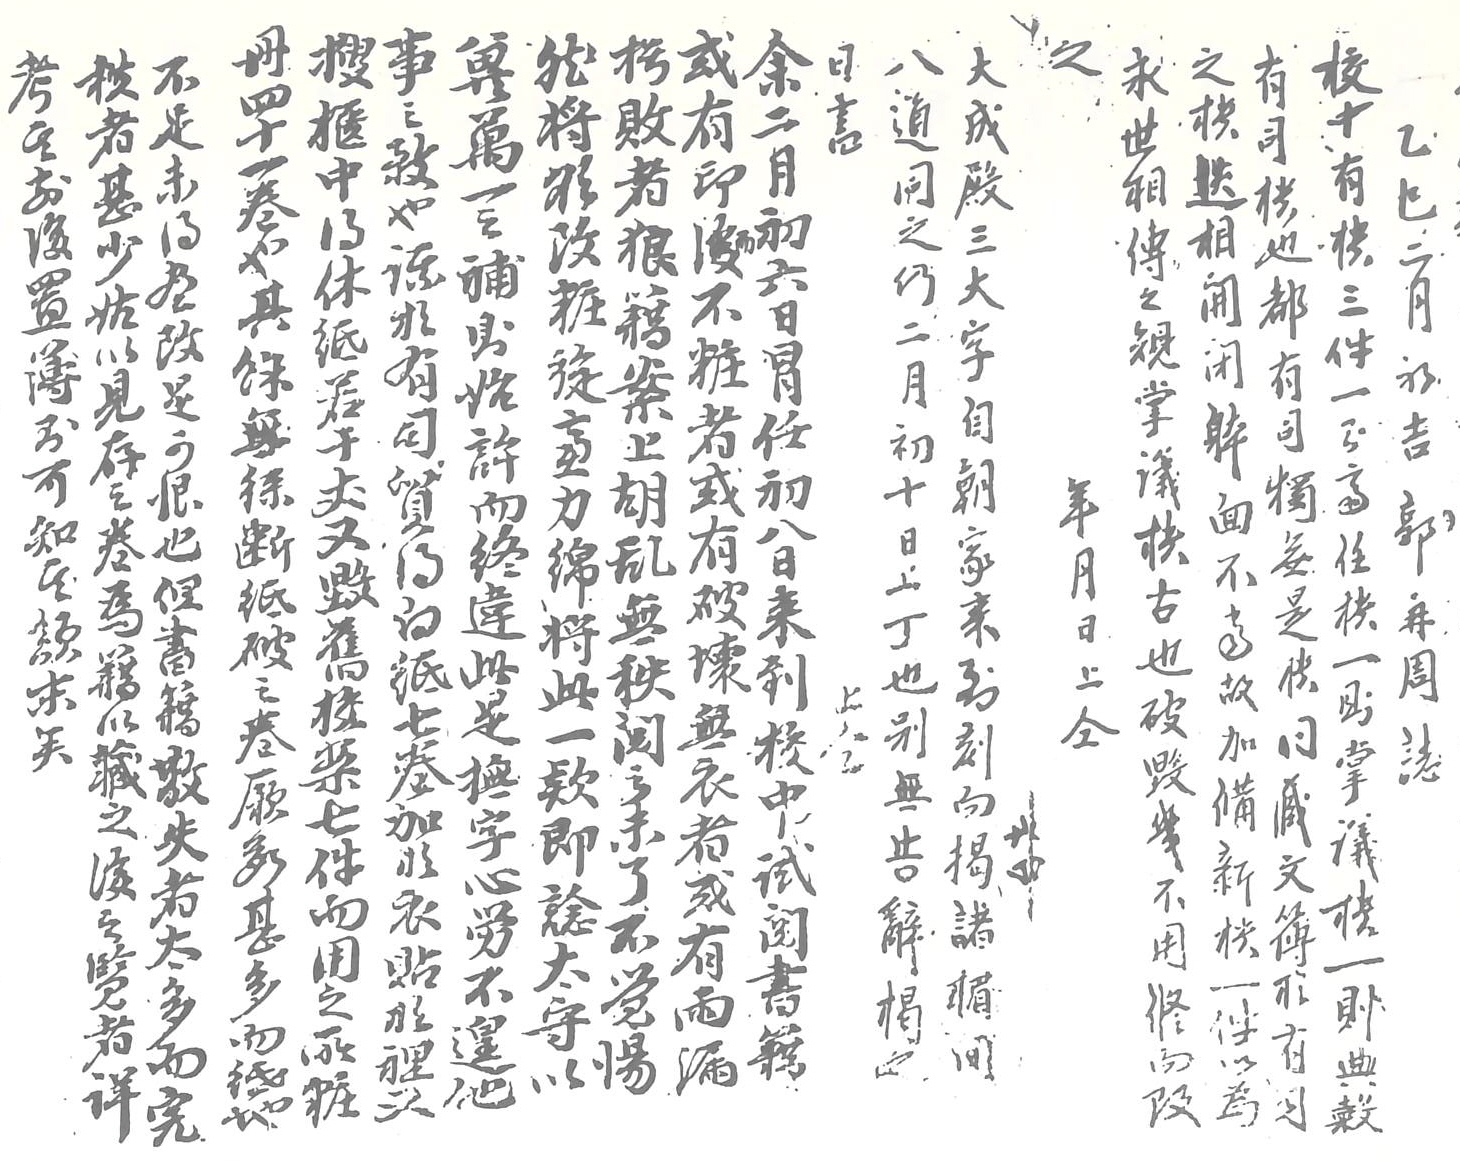 乙巳二月初吉 郭再周誌
校十有樻三件一則齋任樻一則掌議樻一則典穀
有司樻也都有司獨無是樻同藏文簿於有司
之樻迭相開閉事面不寧故加備新樻一件以為
永世相傳之規掌議樻古也破毀幾不用修而改
之
年月日上仝
大成殿三大字自朝家来到刻而揭諸楣間
八道同之行二月初十日上丁也別無告辭揭之
日書
余二月初六日冒任初八日来到校中試閱書籍
或有印後而不粧者或有破壞無衣者或有雨漏
朽敗者狼籍案上胡乱無秩閱之未了不覚惕
然將欲改粧旋齋力綿將此一款即諗太守以
冀萬一之補則始許而終違此是撫字心勞不遑他
事之致也謀於有司貿得白紙七卷加於衣貼於裡又
搜樻中得休紙若干丈又毀舊校案七件而用之所粧
冊四十一卷也其餘無絲断紙破之卷厥數甚多而紙也
不足未得盡改是可恨也但書籍散失者太多而完
秩者甚少姑以見存之卷為籍以藏之後之覽者詳
考其前後置簿則可知其顛末矣